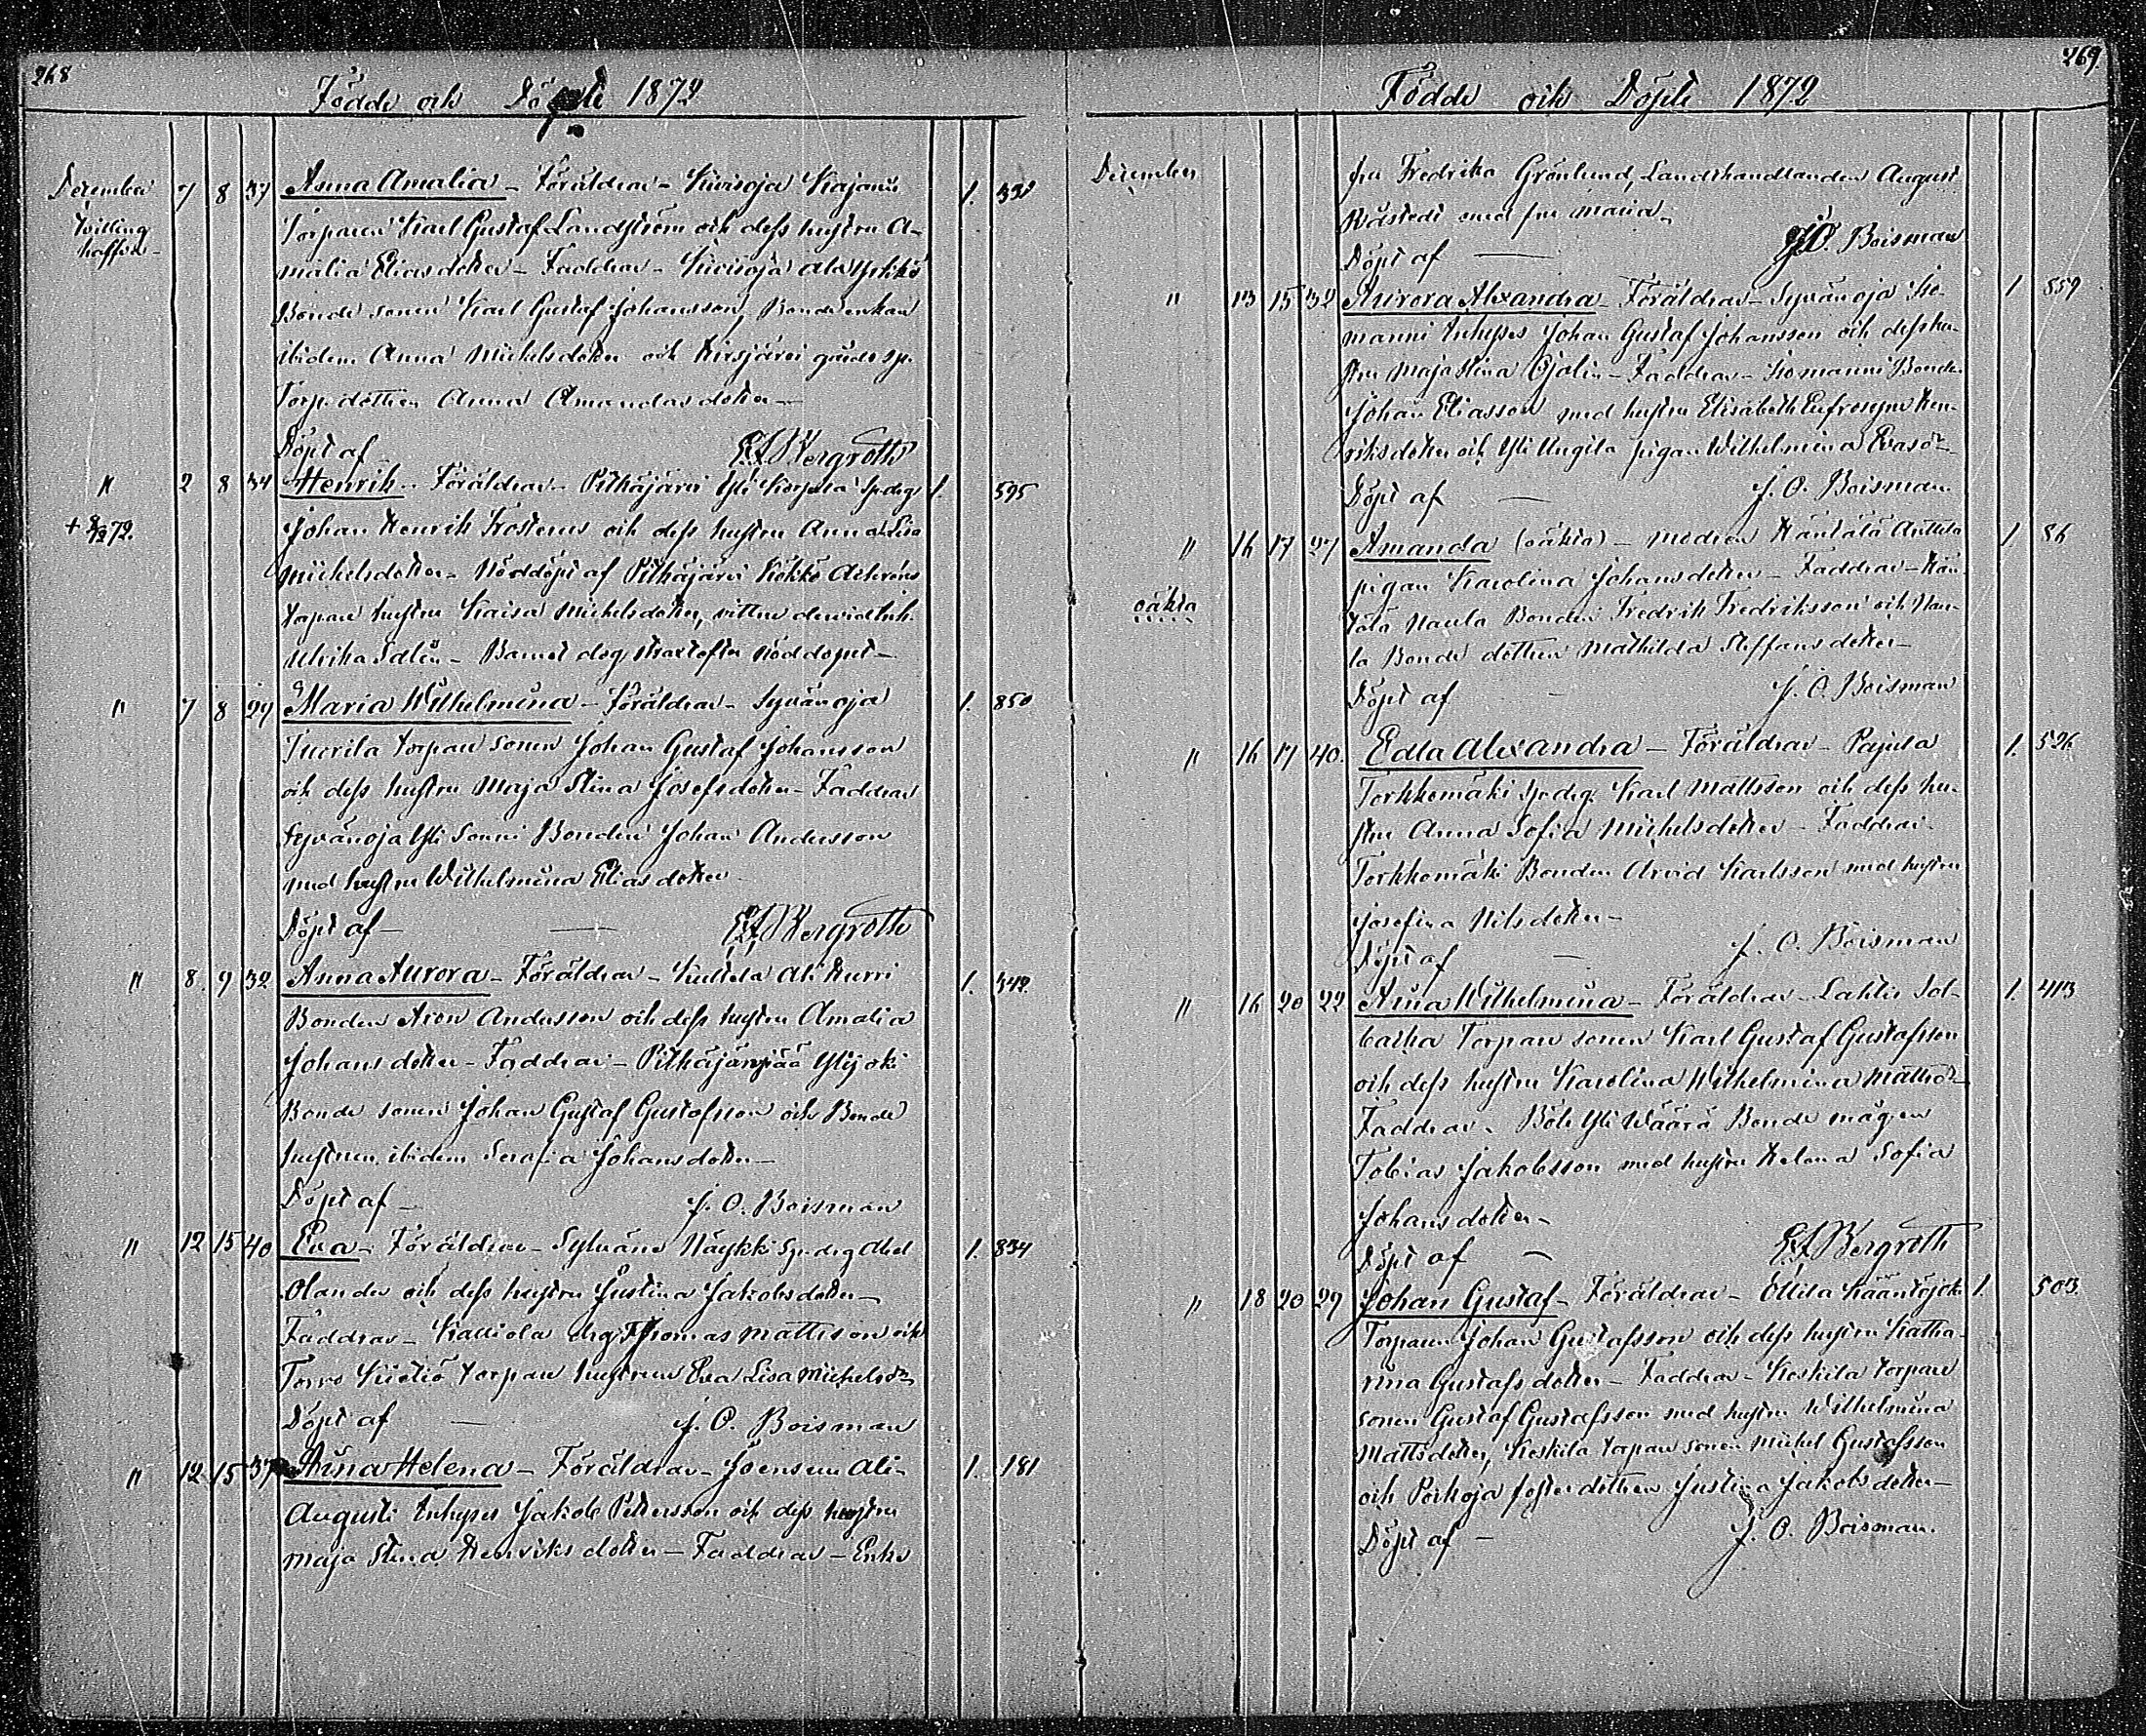 268
Födde och Döpte 1872
December 7 8 37 Anna Amalia – Föräldrar – Kivisoja Kajanus 1. 331
Tvilling
Torparen Karl Gustaf Landström och dess hustru A-
malia Eliasdotter – Faddrar – Kivisoja Ala
Bonde sonen Karl Gustaf Johansson, Bonde enkan
ibidem Anna Michelsdotter och Kirsjärvi gårds sp.
Torp. dottren Anna Amandasdotter –
Döpt af E. A. Bergroth
" 2 8 34 Henrik – Föräldrar – Pitkäjärvi Yli Korpela Sp. drg 1. 595
+ 8/12 72.
Johan Henrik Frosterus och dess hustru Anna Lisa
Michelsdotter – Nöddöpt af Pitkäjärvi Kökkö
torpare hustru Kaisa Michelsdotter, vittne inh.
Ulrika Sdlin – Barnet dog strax efter nöddopet –
" 7 8 29 Maria Wilhelmina – Föräldrar – Syvänoja 1. 850
Tuorila torpare sonen Johan Gustaf Johansson
och dess hustru Maja Stina Josefsdotter – Faddrar
Syvänoja Yli Sonni Bonden Johan Andersson
med hustru Wilhelmina Eliasdotter –
Döpt af – E. A. Bergroth
" 8. 9 32 Anna Aurora – Föräldrar – Kuttila Ali Kurri 1. 342.
Bonden Aron Andersson och dess hustru Amalia
Johansdotter – Faddrar – Pitkäjärvi Ylijoki
Bonde sonen Johan Gustaf Gustafsson och Bonde
hustrun ibidem Serafia Johansdotter –
Döpt af – J. O. Boisman
" 12 15 40 Eva – Föräldrar – Sylväne Näykki Sp. drg Abel 1. 834
Olander och dess hustru Justina Jakobsdotter –
Faddrar – Kalliola drg Thomas Mattsson och
Torvo torpare hustrun Eva Lisa Michelsdr
Döpt af – J. O. Boisman
" 12. 15 37 Aina Helena – Föräldrar – Joensuu Ali- 1. 181
Augusti Inhyses Jakob Pettersson och dess hustru
Maja Stina Henriksdotter – Faddrar – Enke
269
Födde och Döpte 1872
December fru Fredrika Grönlund, Landthandlanden August
Råstedt med fru Maria –
Döpt af – J. O. Boisman
" 13 15 32 Aurora Alexandra – Föräldrar – Syvänoja Sio- 1 859
manni Inhyses Johan Gustaf Johansson och dess hu-
stru Maja Stina Ojalin – Faddrar – Siomanni Bonden
Johan Eliasson med hustru Elisabeth Eufrosyne Hen-
riksdotter och Yli Ungila pigan Wilhelmina Evasdr –
Döpt af – J. O. Boisman
" 16 17 27 Amanda (oäkta) – Modren Häntälä Anttila 1. 86
oäkta
pigan Karolina Johansdotter – Faddrar – Hän-
tälä Naula Bonden Fredrik Fredriksson och Nau-
la Bonde dottren Mathilda Steffansdotter –
Döpt af – J. O. Boisman
" 16 17 40. Edla Alexandra – Föräldrar – Pajula 1. 526
Torkkomäki Sp. drg. Karl Mattsson och dess hu-
stru Anna Sofia Michelsdotter – Faddrar –
Torkkomäki Bonden Arvid Karlsson med hustru
Josefina Nilsdotter –
Döpt af – J. O. Boisman
" 16 20 22 Aina Wilhelmina – Föräldrar – Lahtis Sol- 1. 413
backa Torpare sonen Karl Gustaf Gustafsson
och dess hustru Karolina Wilhelmina Mattsdr –
Faddrar – Böle Yli Wäärä Bonde mågen
Tobias Jakobsson med hustru Helena Sofia
Johansdotter –
Döpt af – E. A. Bergroth
" 18 20 29 Johan Gustaf – Föräldrar – Ollila Kääntöjoki 1. 503.
Torparen Johan Gustafsson och dess hustru Katha-
rina Gustafsdotter – Faddrar – Koskila torpare
sonen Gustaf Gustafsson med hustru Wilhelmina
Mattsdotter, Koskila torpare sonen Michel Gustafsson
och Porkoja foster dottren Justina Jakobsdotter –
Döpt af – J. O. Boisman.